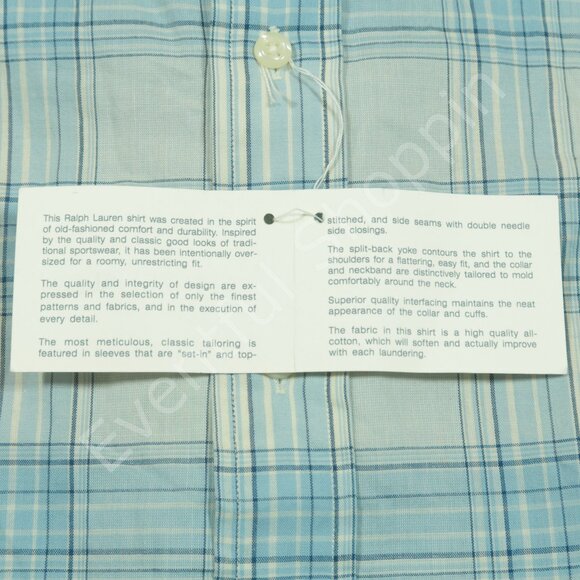 This Ralph Lauren shirt was created in the spirit
of old-fashioned comfort and durability. Inspired
by the quality and classic good looks of tradi-
tional sportswear, it has been intentionally over-
sized for a roomy, unrestricting fit.
The quality and integrity of design are ex-
pressed in the selection of only the finest
patterns and fabrics, and in the execution of
every detail.
The most meticulous, classic tailoring is
featured in sleeves that are "set-in" and top-
stitched, and side seams with double needle
side closings.
The split-back yoke contours the shirt to the
shoulders for a flattering, easy fit, and the collar
and neckband are distinctively tailored to mold
comfortably around the neck.
Superior quality interfacing maintains the neat
appearance of the collar and cuffs.
The fabric in this shirt is a high quality all-
cotton, which will soften and actually improve
with each laundering.
Eventful Shoppin